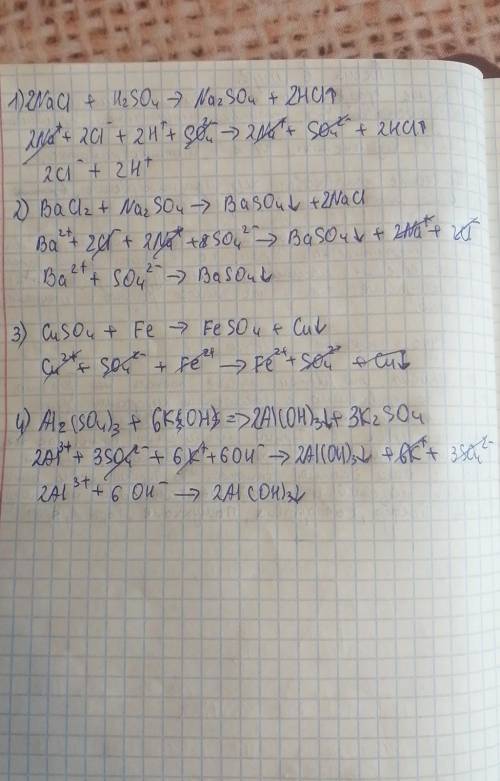 1) 2NaCl + H₂SO₄ → Na₂SO₄ + 2HCl↑
2Na⁺ + 2Cl⁻ + 2H⁺ + SO₄²⁻ → 2Na⁺ + SO₄²⁻ + 2HCl↑
2Cl⁻ + 2H⁺
2) BaCl₂ + Na₂SO₄ → BaSO₄↓ + 2NaCl
Ba²⁺ + 2Cl⁻ + 2Na⁺ + SO₄²⁻ → BaSO₄↓ + 2Na⁺ + 2Cl⁻
Ba²⁺ + SO₄²⁻ → BaSO₄↓
3) CuSO₄ + Fe → FeSO₄ + Cu↓
Cu²⁺ + SO₄²⁻ + Fe²⁺ → Fe²⁺ + SO₄²⁻ + Cu↓
4) Al₂(SO₄)₃ + 6K(OH) => 2Al(OH)₃↓ + 3K₂SO₄
2Al³⁺ + 3SO₄²⁻ + 6K⁺ + 6OH⁻ → 2Al(OH)₃↓ + 6K⁺ + 3SO₄²⁻
2Al³⁺ + 6OH⁻ → 2Al(OH)₃↓